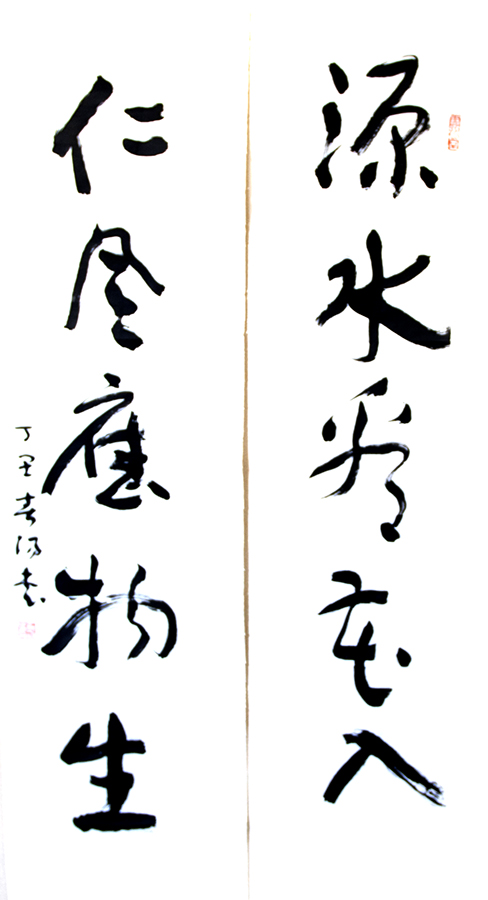 源水看花入
仁風應物生
丁丑春 書